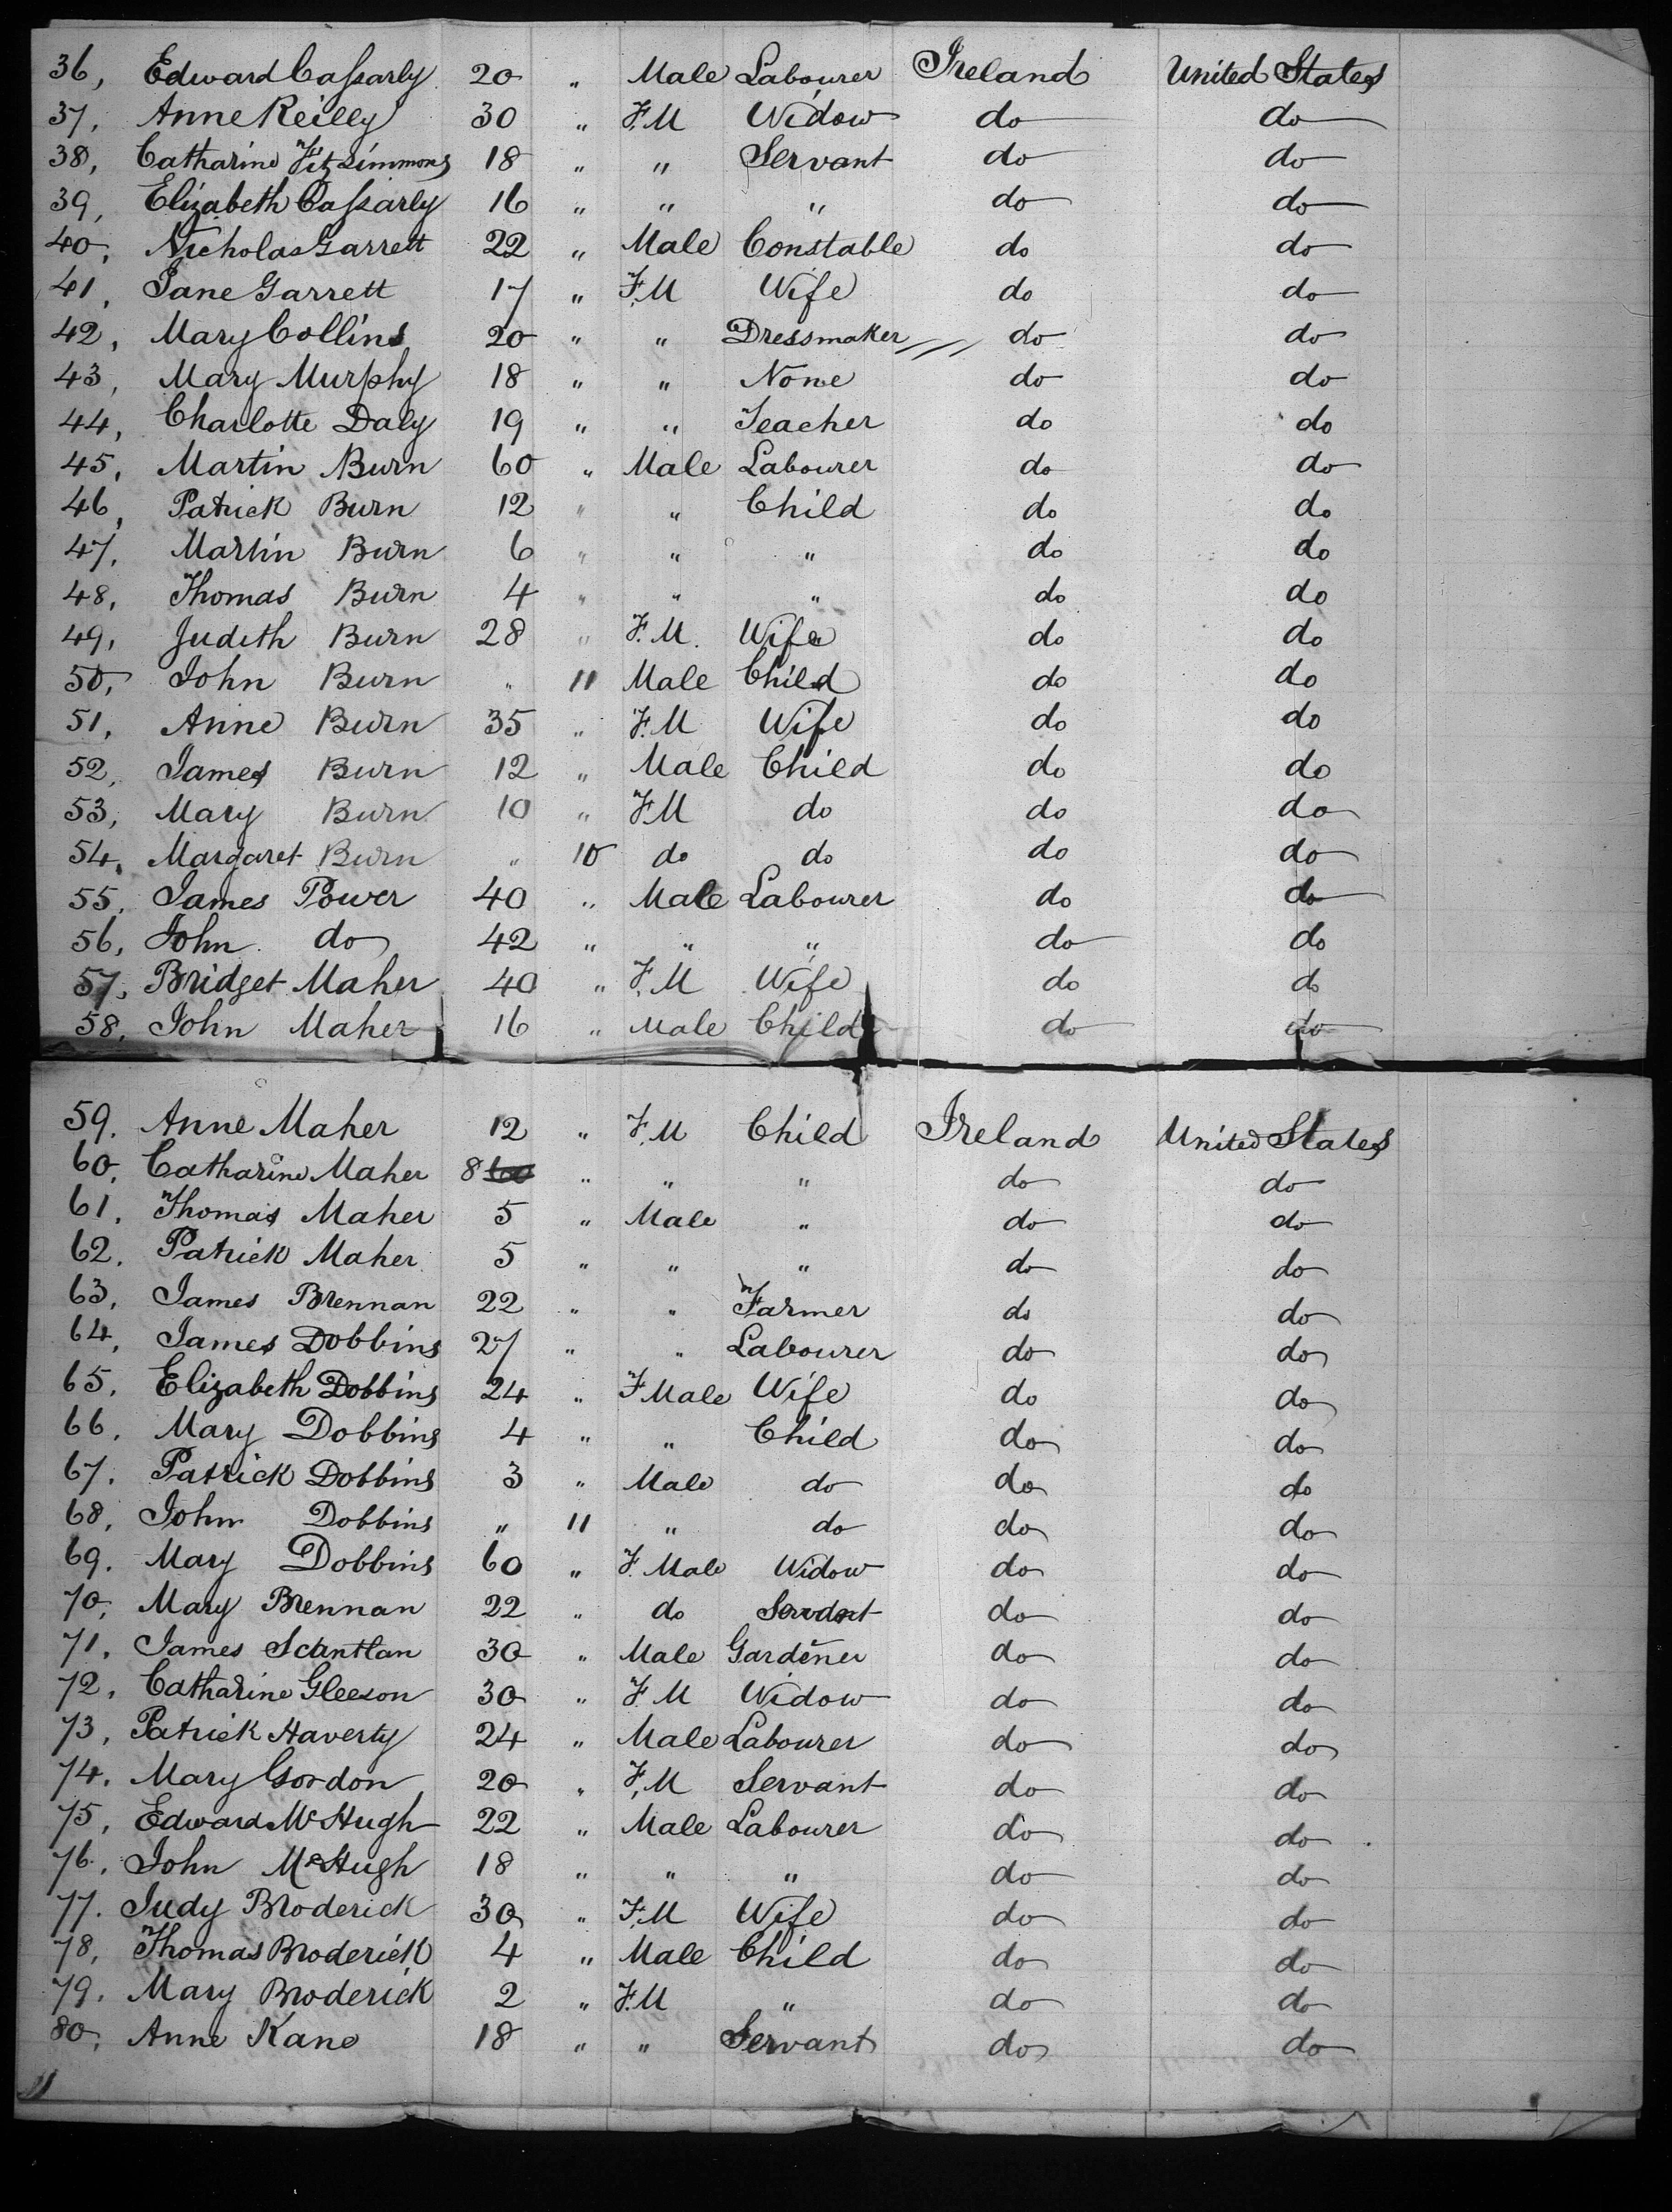 36, Edward Cassarly 20 " Male Labourer Ireland United States
37, Anne Reilly 30 " F.M Widow do do
38, Catharine Fitzsimmons 18 " " Servant do do
39, Elizabeth Cassarly 16 " " " do do
40, Nicholas Garrett 22 " Male Constable do do
41, Jane Garrett 17 " F.M Wife do do
42, Mary Collins 20 " " Dressmaker do do
43, Mary Murphy 18 " " None do do
44, Charlotte Daly 19 " " Teacher do do
45, Martin Burn 60 " Male Labourer do do
46, Patrick Burn 12 " " Child do do
47, Martin Burn 6 " " " do do
48, Thomas Burn 4 " " " do do
49, Judith Burn 28 " F.M. Wife do do
50, John Burn " 11 Male Child do do
51, Anne Burn 35 " F.M Wife do do
52, James Burn 12 " Male Child do do
53, Mary Burn 10 " F.M do do do
54, Margaret Burn " 10 do do do do
55, James Power 40 " Male Labourer do do
56, John do 42 " " " do do
57, Bridget Maher 40 " F.M Wife do do
58, John Maher 16 " Male Child do do
59. Anne Maher 12 " F.M Child Ireland United States
60, Catharine Maher 8 " " " do do
61, Thomas Maher 5 " Male " do do
62, Patrick Maher 5 " " " do do
63, James Brennan 22 " " Farmer do do
64, James Dobbins 27 " " Labourer do do
65, Elizabeth Dobbins 24 " F Male Wife do do
66, Mary Dobbins 4 " " Child do do
67. Patrick Dobbins 3 " Male do do do
68, John Dobbins " 11 " do do do
69. Mary Dobbins 60 " F. Male Widow do do
70, Mary Brennan 22 " do Servant do do
71, James Scantlan 30 " Male Gardener do do
72, Catharine Gleeson 30 " F.M Widow do do
73, Patrick Haverty 24 " Male Labourer do do
74, Mary Gordon 20 " F.M Servant do do
75, Edward McHugh 22 " Male Labourer do do
76, John McHugh 18 " " " do do
77. Judy Broderick 30 " F.M Wife do do
78, Thomas Broderick 4 " Male Child do do
79. Mary Broderick 2 " F.M " do do
80, Anne Kane 18 " " Servant do do